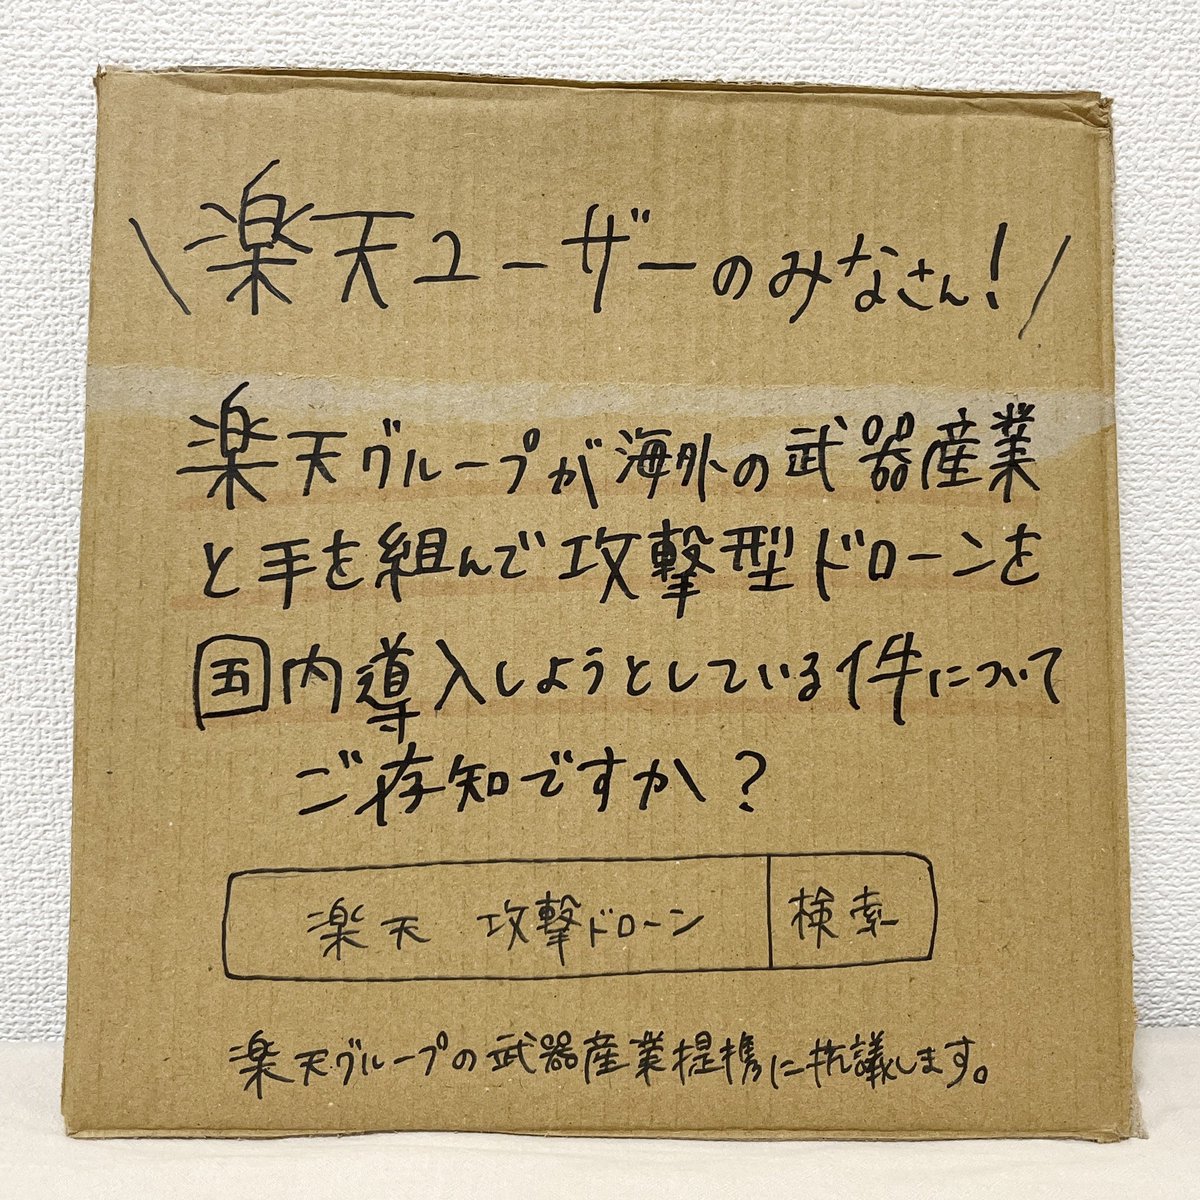 \楽天ユーザーのみなさん!/
楽天グループが海外の武器産業
と手を組んで攻撃型ドローンを
国内導入しようとしている件について
ご存知ですか?
楽天 攻撃ドローン 検索
楽天グループの武器産業提携に抗議します。